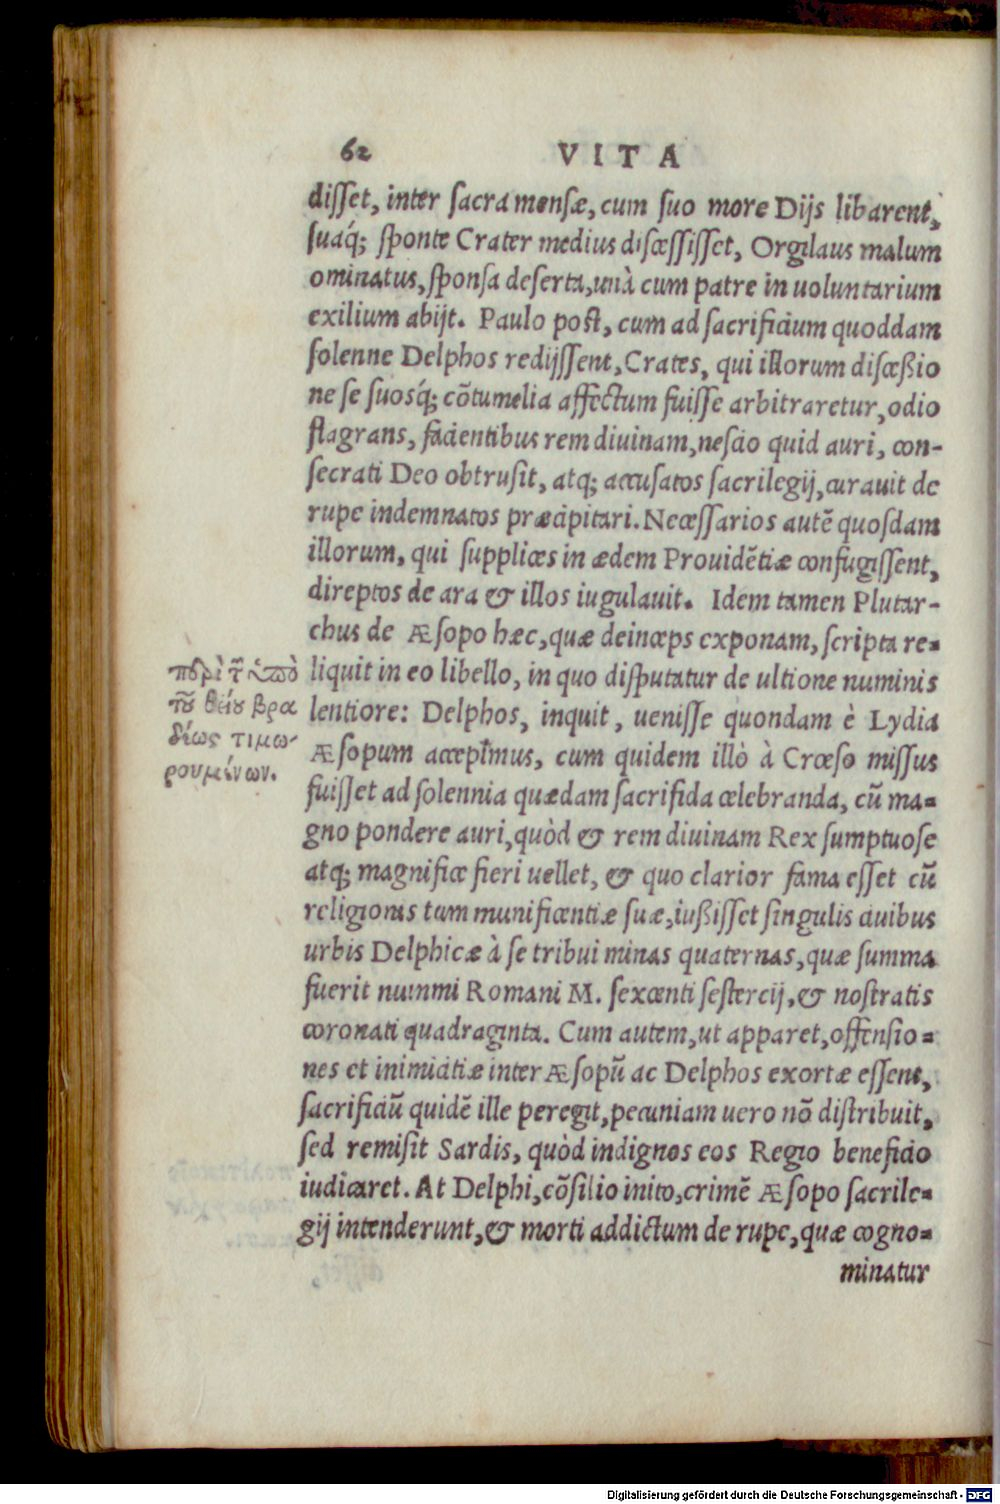 62 VITA
disset, inter sacra mensæ, cum suo more Dijs libarent,
suaq́; sponte Crater medius discessisset, Orgilaus malum
ominatus, sponsa deserta, unà cum patre in uoluntarium
exilium abijt. Paulo post, cum ad sacrificium quoddam
solenne Delphos redijssent, Crates, qui illorum disceßio
ne se suosq́; cõtumelia affectum fuisse arbitraretur, odio
flagrans, facientibus rem diuinam, nescio quid auri, con-
secrati Deo obtrusit, atq; accusatos sacrilegij, curauit de
rupe indemnatos præcipitari. Necessarios autẽ quosdam
illorum, qui supplices in ædem Prouidẽtiæ confugissent,
direptos de ara & illos iugulauit. Idem tamen Plutar-
chus de Æsopo hæc, quæ deinceps exponam, scripta re-
liquit in eo libello, in quo disputatur de ultione numinis
lentiore: Delphos, inquit, uenisse quondam è Lydia
Æsopum accepimus, cum quidem illò à Crœso missus
fuisset ad solennia quædam sacrificia celebranda, cũ ma-
gno pondere auri, quòd & rem diuinam Rex sumptuose
atq; magnifice fieri uellet, & quo clarior fama esset cũ
religionis tum munificentiæ suæ, iußisset singulis ciuibus
urbis Delphicæ à se tribui minas quaternas, quæ summa
fuerit nummi Romani M. sexcenti sestercij, & nostratis
coronati quadraginta. Cum autem, ut apparet, offensio-
nes et inimicitiæ inter Æsopũ ac Delphos exortæ essent,
sacrificiũ quidẽ ille peregit, pecuniam uero nõ distribuit,
sed remisit Sardis, quòd indignos eos Regio beneficio
iudicaret. At Delphi, cõsilio inito, crimẽ Æsopo sacrile-
gij intenderunt, & morti addictum de rupe, quæ cogno-
minatur
περὶ τ͂ ὑπὸ
τȣ͂ θείȣ βρα
δέως τιμω-
ρουμένων.
Digitalisierung gefördert durch die Deutsche Forschungsgemeinschaft - DFG